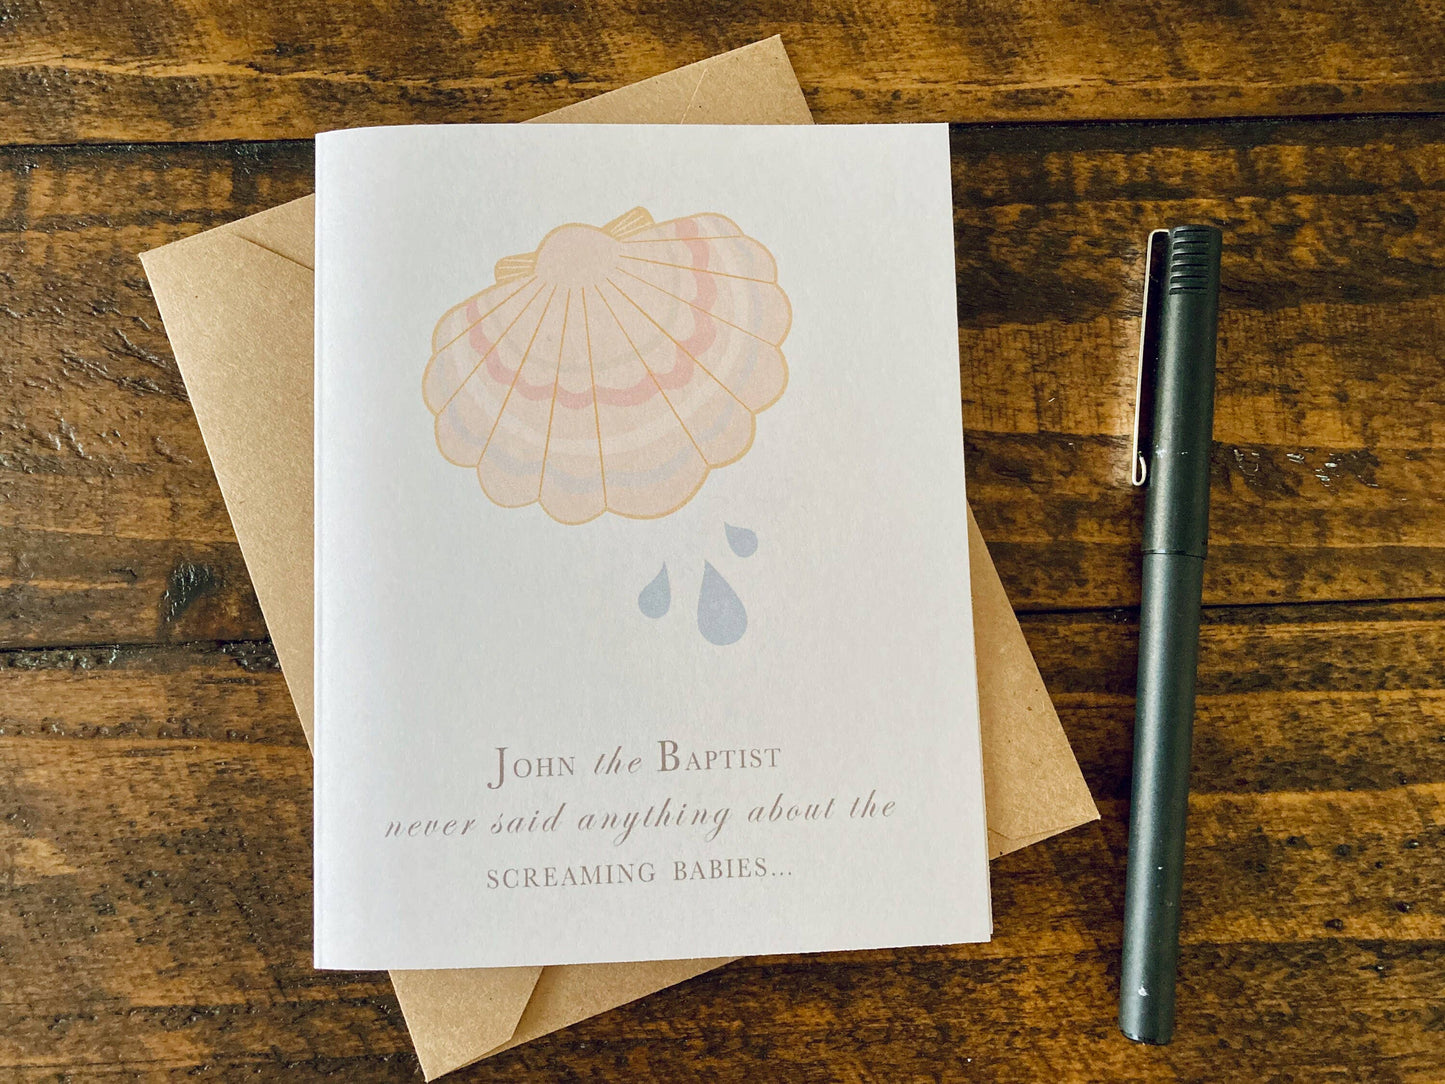 John the Baptist
never said anything about the
screaming babies...